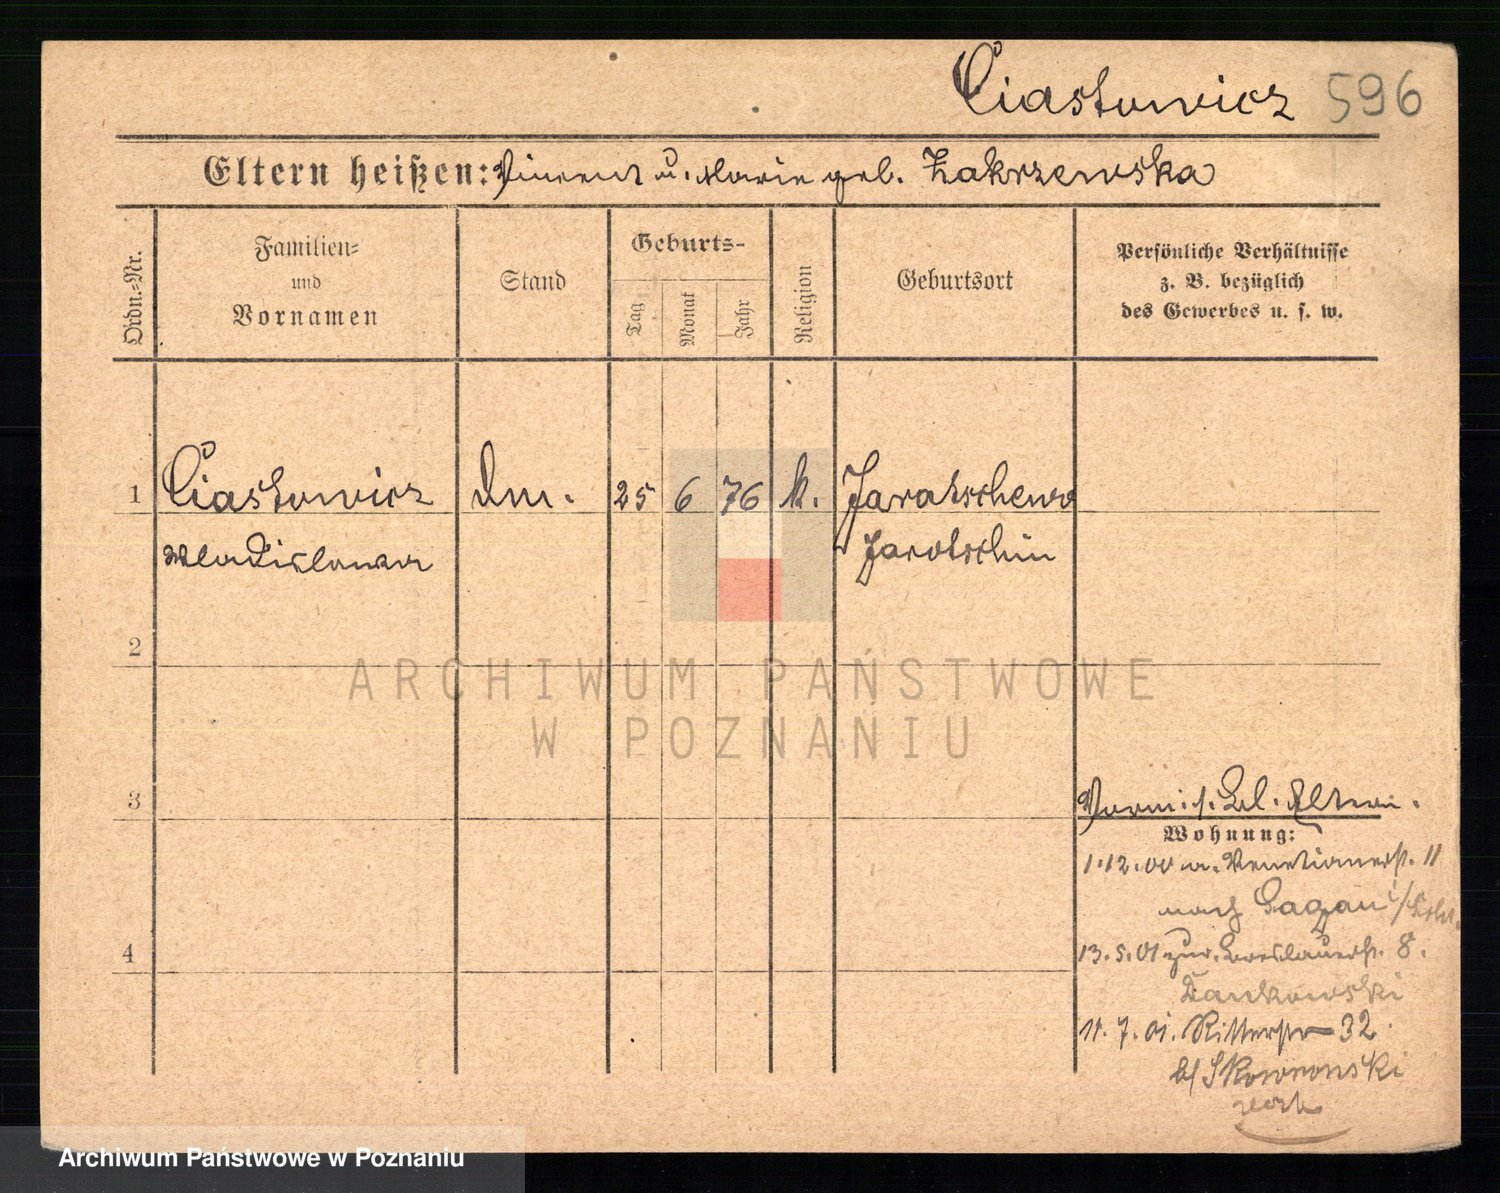 Ciastowicz 596
Eltern heißen: Vincent u. Marie geb. Zakrzewska
Ordn.-Nr.
Familien-
und
Vornamen
Stand
Geburts-
Tag
Monat
Jahr
Religion
Geburtsort
Persönliche Verhältnisse
z. B. bezüglich
des Gewerbes u. s. w.
1 Ciastowicz 25 6 76 k. Jaratschewo
Wladislawa Jarotschin
2
3
4
Vorm. s. Bl. Eltern.
Wohnung:
1.12.00 a. Venetianerst. 11
nach Sagan
13.5.01 zur. Breslauerst. 8.
Dankowski
11.7.01. Ritterstr 32.
b/ Skowronski
ARCHIWUM PAŃSTWOWE
W POZNANIU
Archiwum Państwowe w Poznaniu